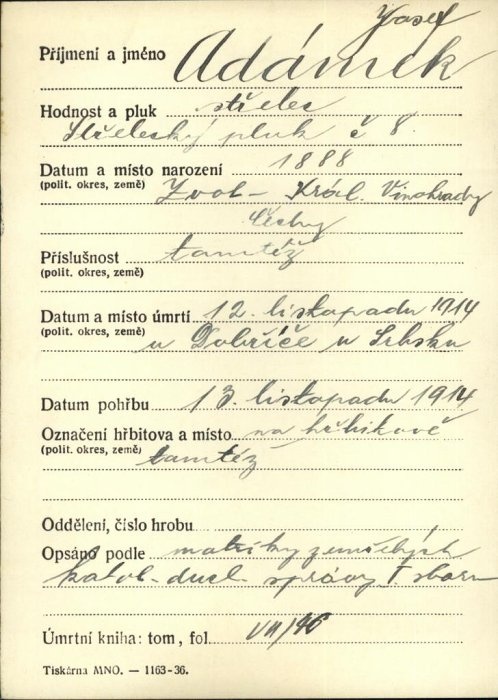 Josef
Příjmení a jméno Adámek
Hodnost a pluk střelec
Střelecký pluk č 8.
Datum a místo narození 1888
(polit. okres, země) Zvol - Král. Vinohrady
Čechy
Příslušnost tamtéž
(polit. okres, země)
Datum a místo úmrtí 12. listopadu 1914
(polit. okres, země) u Dobříče u Srbsku
Datum pohřbu 13. listopadu 1914
Označení hřbitova a místo na
(polit. okres, země) tamtéž
Oddělení, číslo hrobu
Opsáno podle matriky zemřelých
katol. duch. správy I. sboru
Úmrtní kniha: tom, fol. VII/46
Tiskárna MNO. — 1163-36.